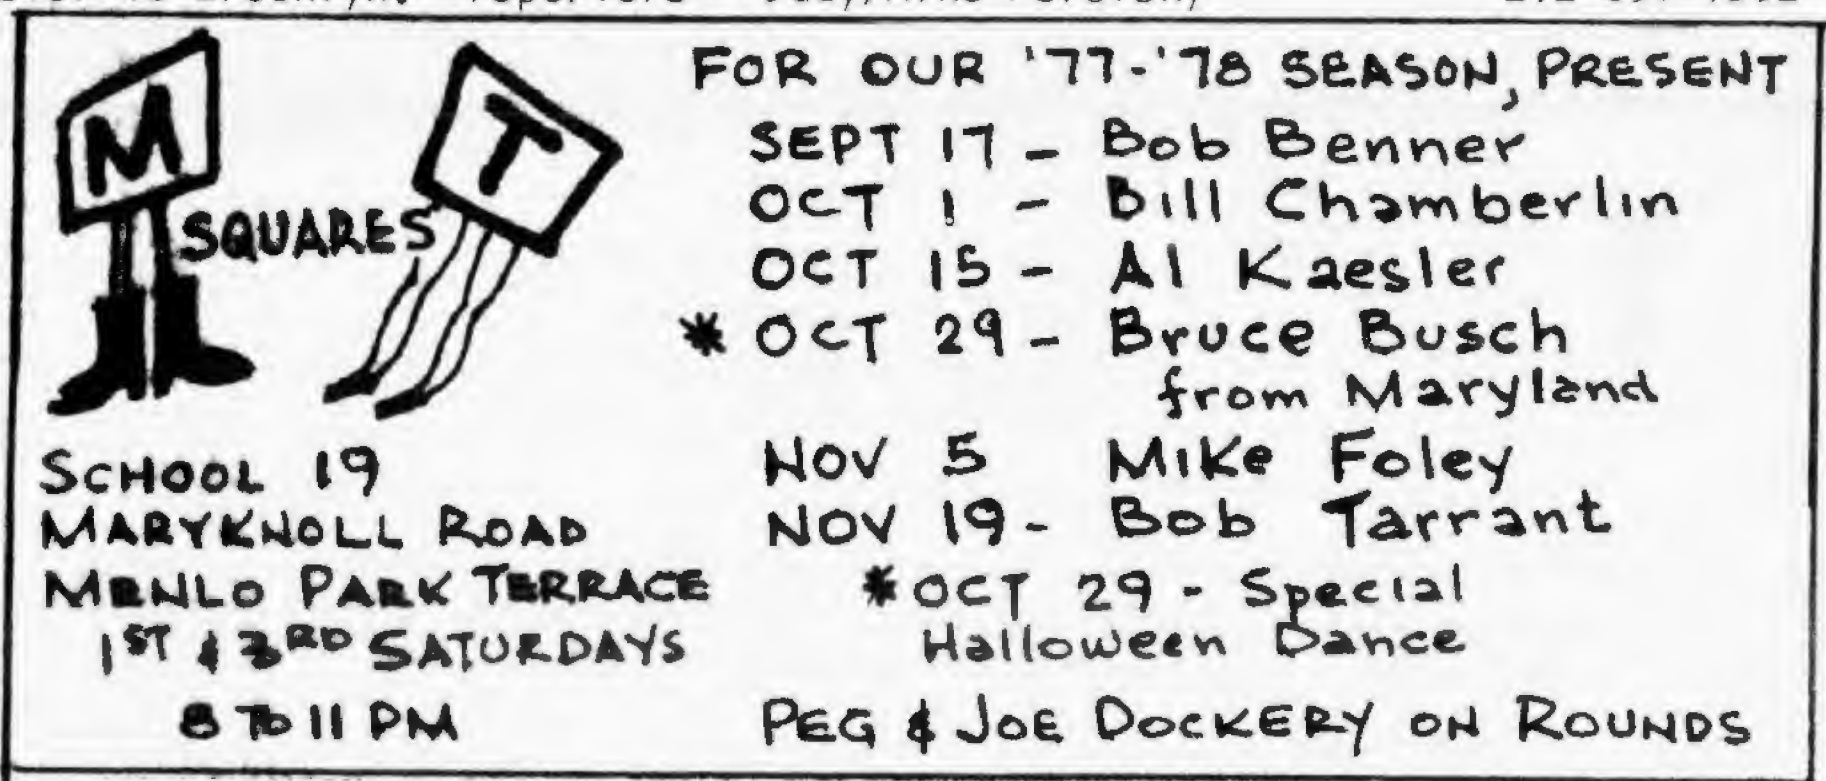 M T
SQUARES
SCHOOL 19
MARYKNOLL ROAD
MENLO PARK TERRACE
1ST & 3RD SATURDAYS
8 TO 11 PM
FOR OUR '77-'78 SEASON, PRESENT
SEPT 17 - Bob Benner
OCT 1 - Bill Chamberlin
OCT 15 - Al Kaesler
* OCT 29 - Bruce Busch
from Maryland
NOV 5 Mike Foley
NOV 19 - Bob Tarrant
* OCT 29 - Special
Halloween Dance
PEG & JOE DOCKERY ON ROUNDS